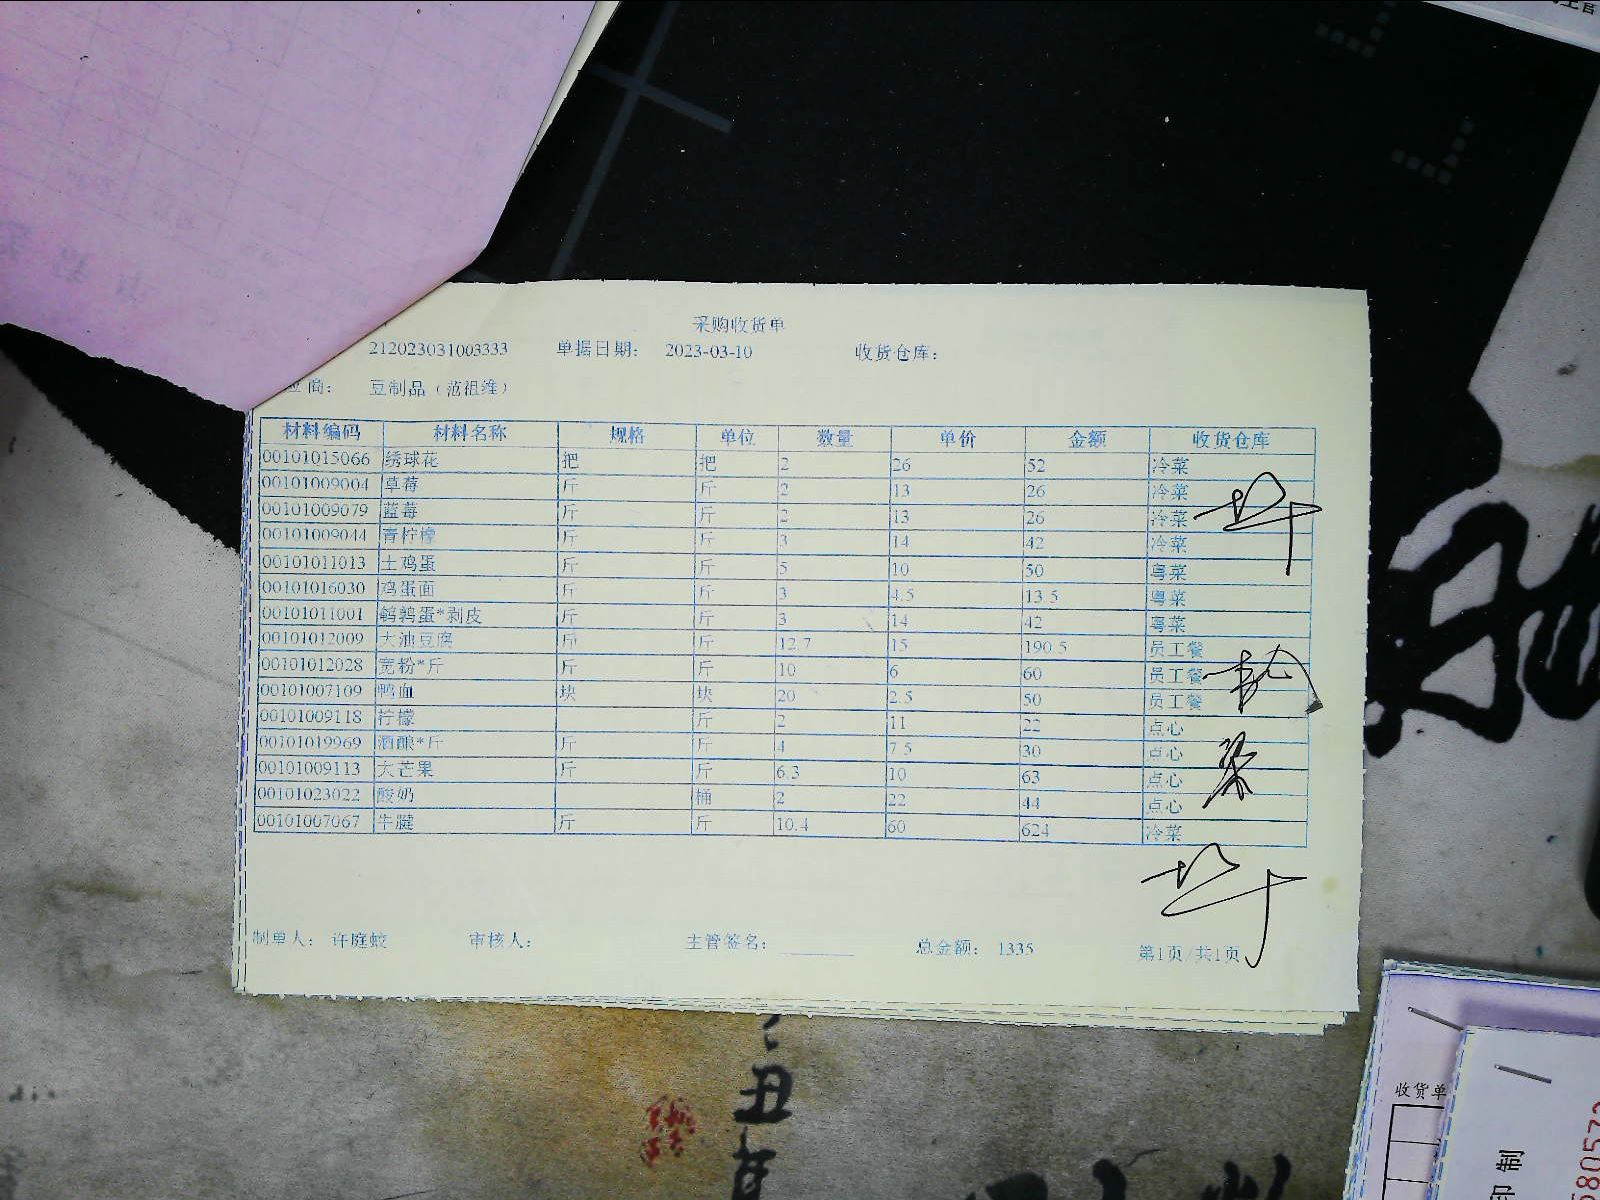 采购收货单
212023031003333 单据日期: 2023-03-10 收货仓库:
应商: 豆制品（范祖维）
材料编码 材料名称 规格 单位 数量 单价 金额 收货仓库
00101015066 绣球花 把 把 2 26 52 冷菜
00101009004 草莓 斤 斤 2 13 26 冷菜
00101009079 蓝莓 斤 斤 2 13 26 冷菜
00101009044 青柠檬 斤 斤 3 14 42 冷菜
00101011013 土鸡蛋 斤 斤 5 10 50 粤菜
00101016030 鸡蛋面 斤 斤 3 4.5 13.5 粤菜
00101011001 鹌鹑蛋*剥皮 斤 斤 3 14 42 粤菜
00101012009 大油豆腐 斤 斤 12.7 15 190.5 员工餐
00101012028 宽粉*斤 斤 斤 10 6 60 员工餐
00101007109 鸭血 块 块 20 2.5 50 员工餐
00101009118 柠檬 斤 2 11 22 点心
00101019969 酒酿*斤 斤 斤 4 7.5 30 点心
00101009113 大芒果 斤 斤 6.3 10 63 点心
00101023022 酸奶 桶 2 22 44 点心
00101007067 牛腱 斤 斤 10.4 60 624 冷菜
制单人: 许庭蛟 审核人: 主管签名: 总金额: 1335 第1页/共1页
收货单
丑